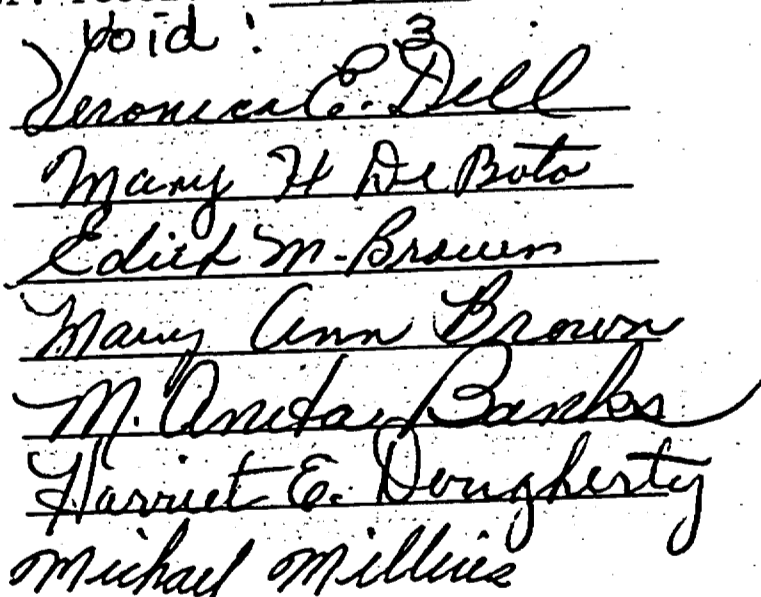 Void : 3
Veronica E. Dell
Mary H De Boto
Edith M. Brown
Mary Ann Brown
M. Anita Banks
Harriet E. Dougherty
Michael